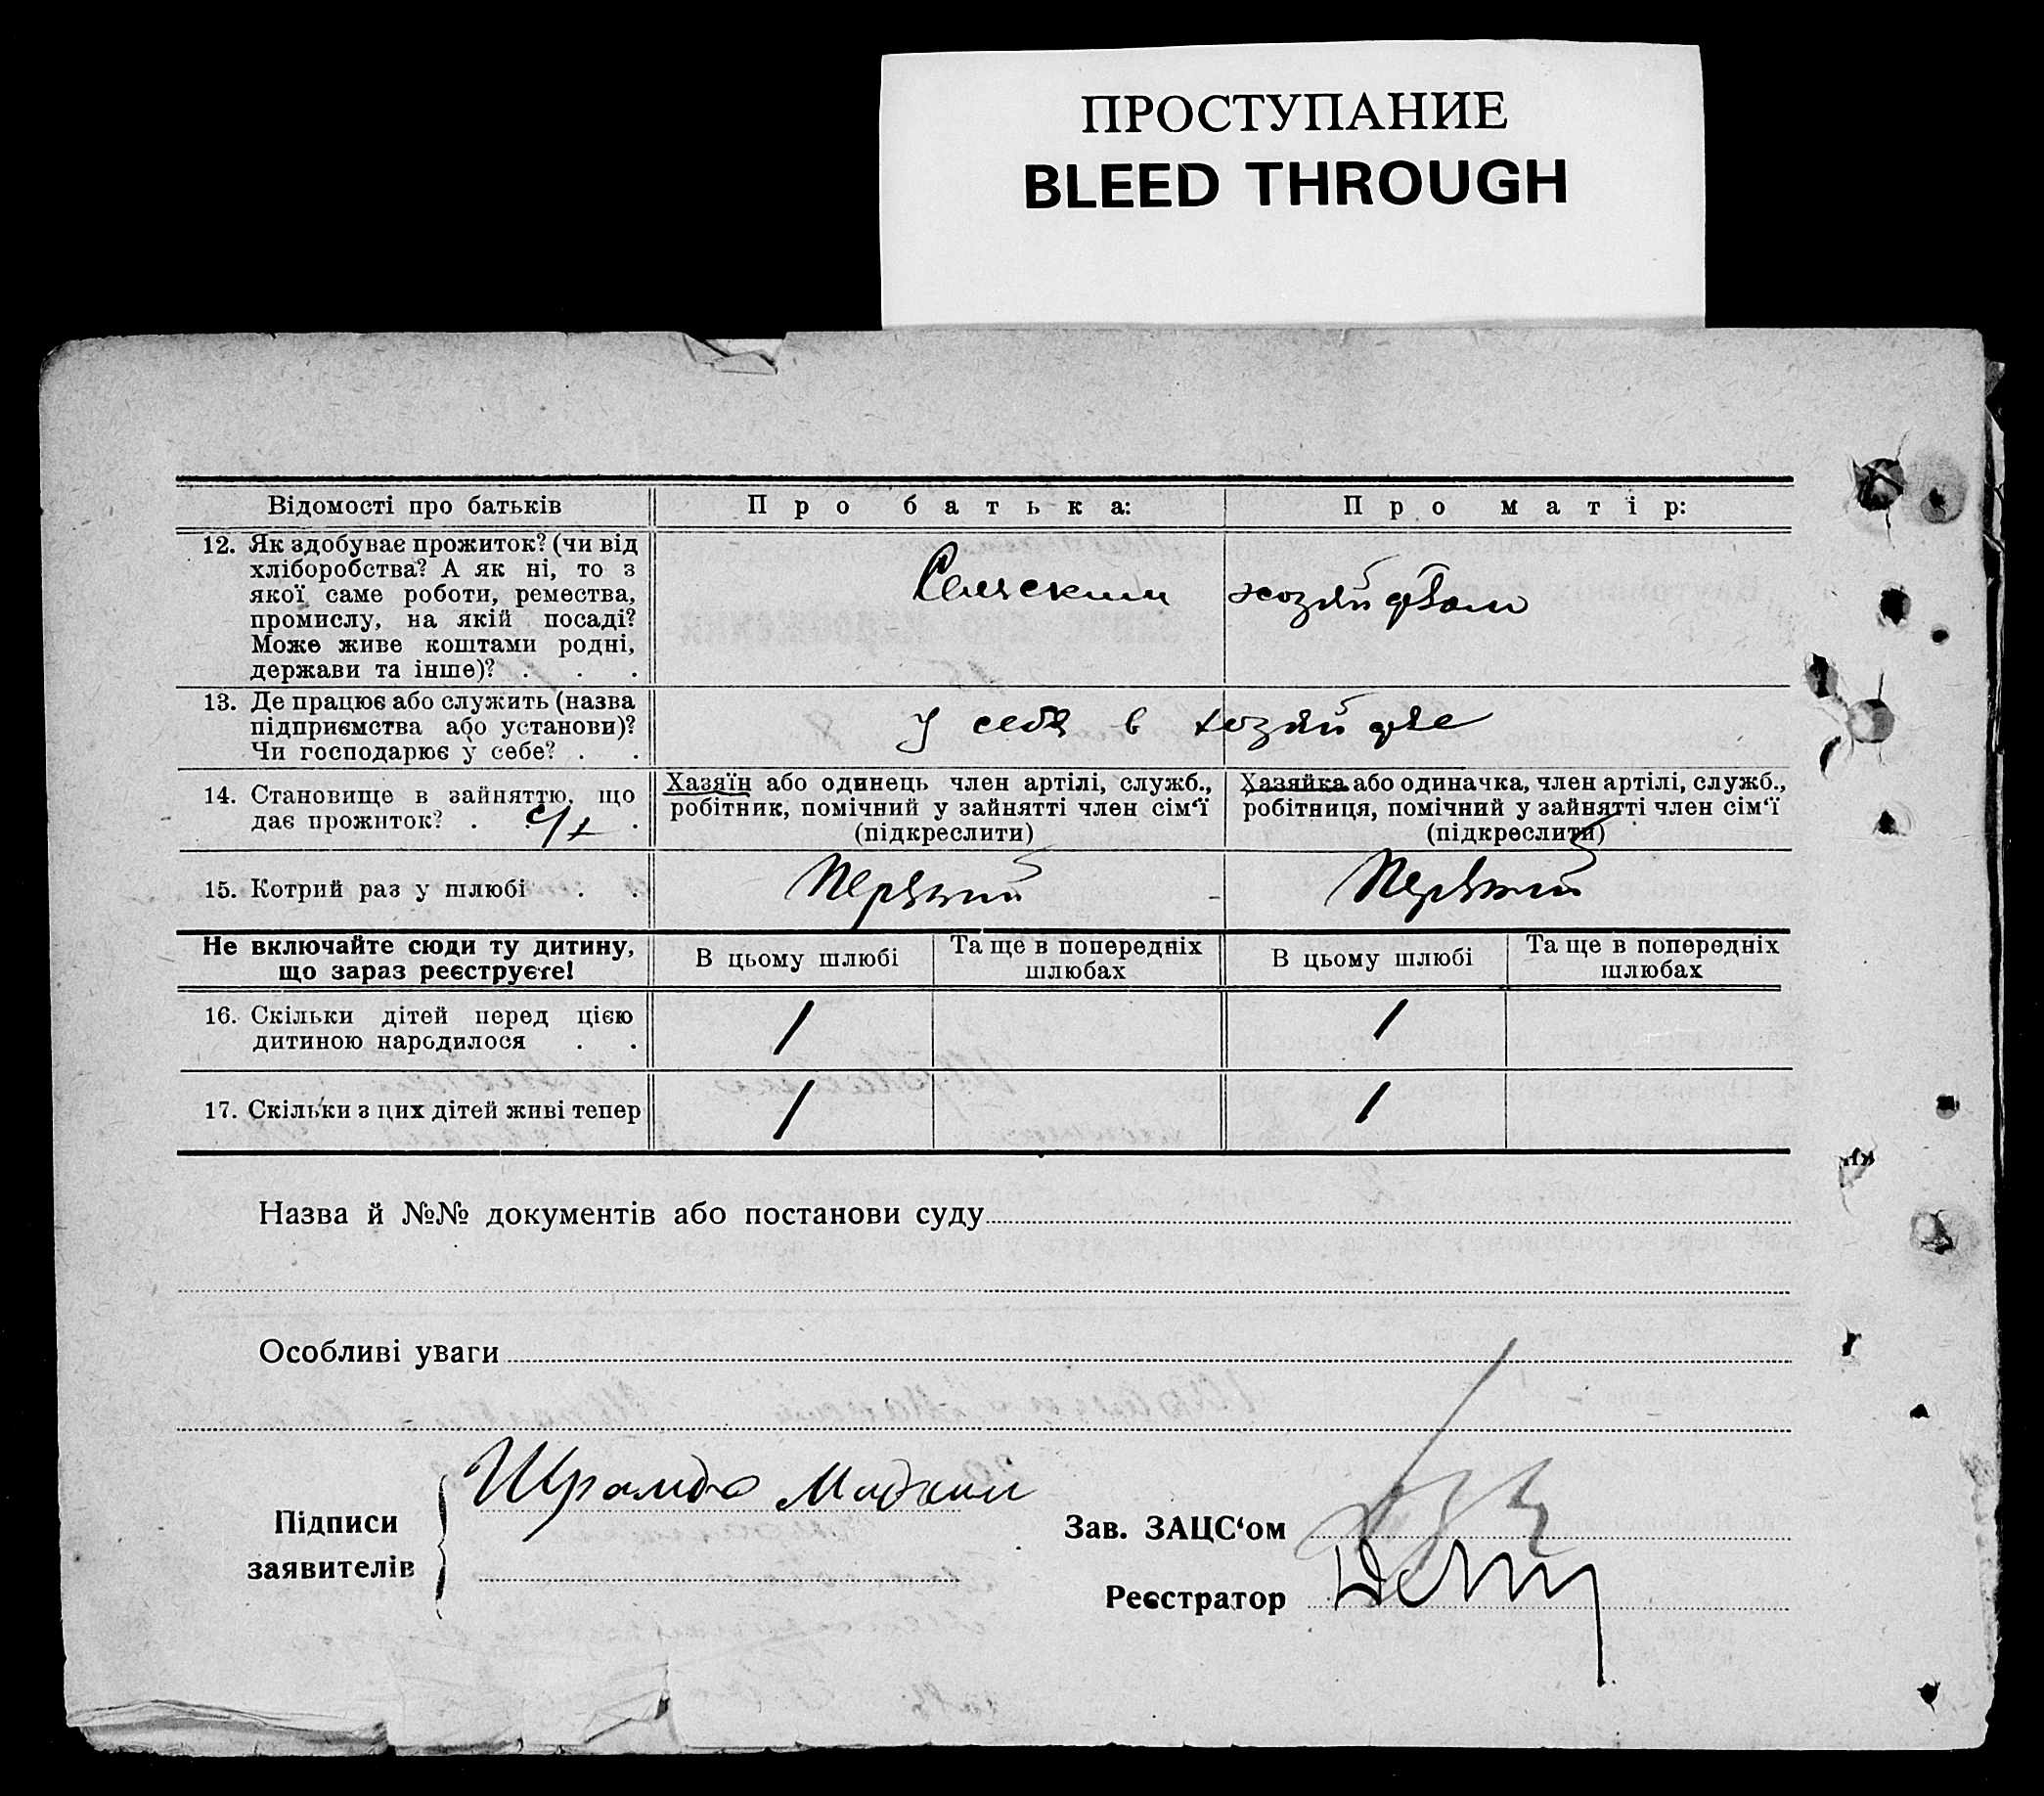 ПРОСТУПАНИЕ
BLEED THROUGH
Відомості про батьків
Про батька:
Про матір:
12. Як здобуває прожиток? (чи від
хліборобства? А як ні, то з
якої саме роботи, ремества,
промислу, на якій посаді?
Може живе коштами родні,
держави та інше)? . . .
Сельским хозяйством
13. Де працює або служить (назва
підприємства або установи)?
Чи господарює у себе? . .
У себя в хозяйстве
14. Становище в зайняттю, що
дає прожиток? . . .
с/х
Хазяїн або одинець член артілі, служб.,
робітник, помічний у зайнятті член сім'ї
(підкреслити)
Хазяйка або одиначка, член артілі, служб.,
робітниця, помічний у зайнятті член сім'ї
(підкреслити)
15. Котрий раз у шлюбі . .
Первый
Первый
Не включайте сюди ту дитину,
що зараз реєструєте!
В цьому шлюбі
Та ще в попередніх
шлюбах
В цьому шлюбі
Та ще в попередніх
шлюбах
16. Скільки дітей перед цією
дитиною народилося . .
1
1
17. Скільки з цих дітей живі тепер
1
1
Назва й №№ документів або постанови суду
Особливі уваги
Підписи
заявителів
Зав. ЗАЦС'ом
Реєстратор